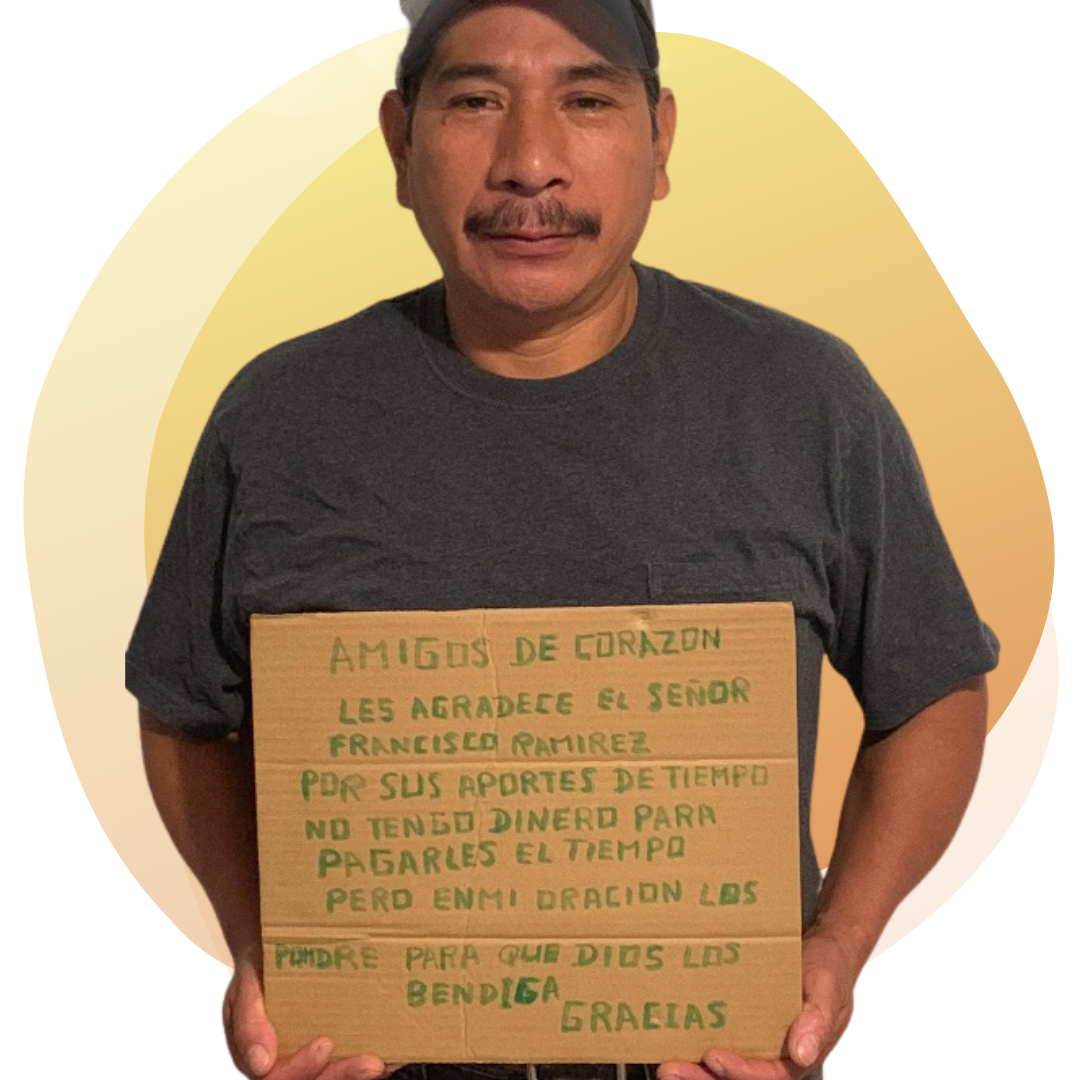 AMIGOS DE CORAZON
LES AGRADECE EL SEÑOR
FRANCISCO RAMIREZ
POR SUS APORTES DE TIEMPO
NO TENGO DINERO PARA
PAGARLES EL TIEMPO
PERO ENMI ORACION LOS
PONDRE PARA QUE DIOS LOS
BENDIGA
GRACIAS